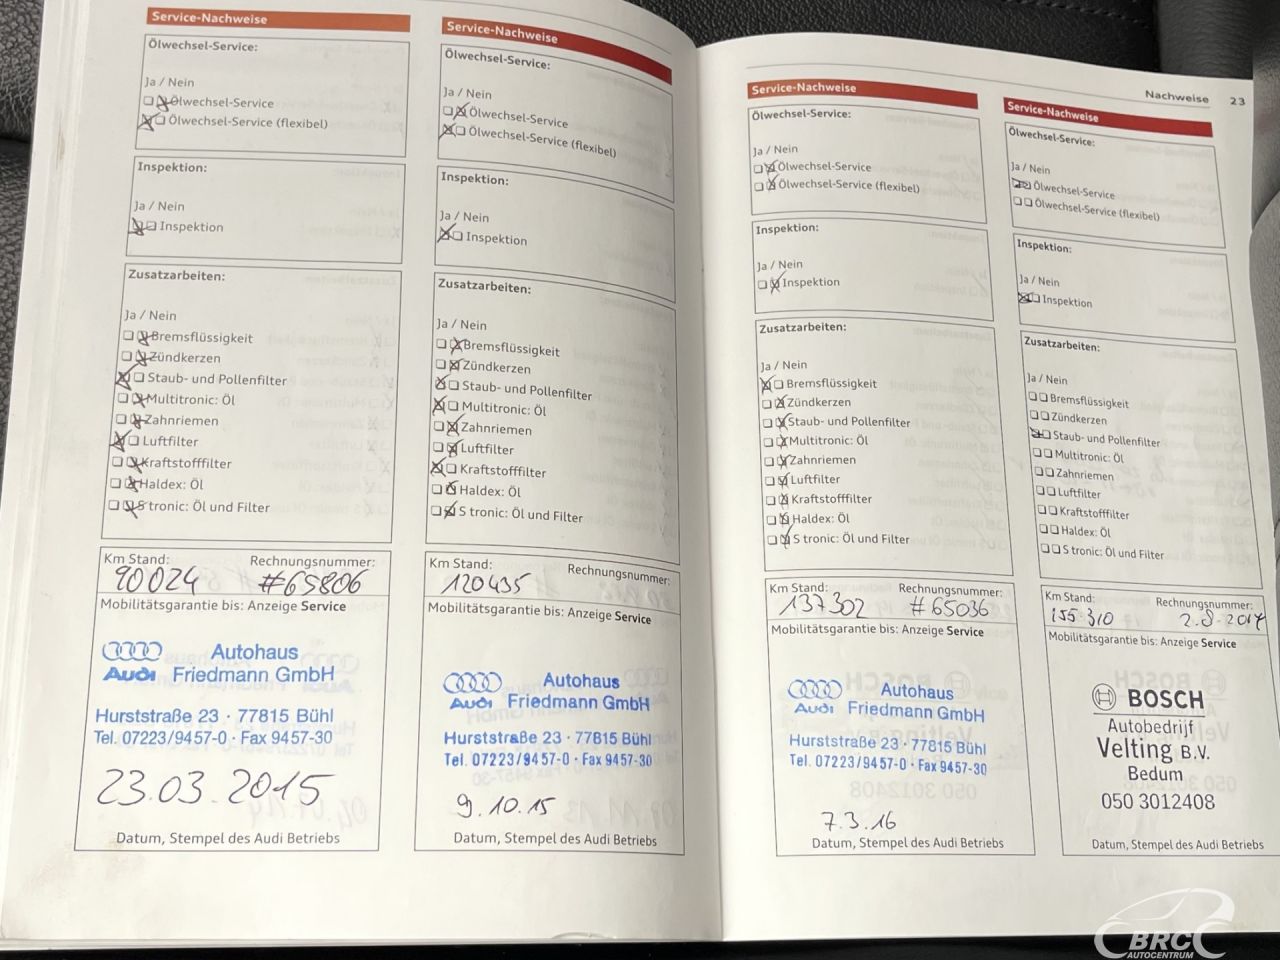 Service-Nachweise
Ölwechsel-Service:
Ja / Nein
Ölwechsel-Service
Ölwechsel-Service (flexibel)
Inspektion:
Ja / Nein
Inspektion
Zusatzarbeiten:
Ja / Nein
Bremsflüssigkeit
Zündkerzen
Staub- und Pollenfilter
Multitronic: Öl
Zahnriemen
Luftfilter
Kraftstofffilter
Haldex: Öl
S tronic: Öl und Filter
Km Stand: Rechnungsnummer:
90024 #65806
Mobilitätsgarantie bis: Anzeige Service
Autohaus
Audi Friedmann GmbH
Hurststraße 23 · 77815 Bühl
Tel. 07223/9457-0 · Fax 9457-30
23.03.2015
Datum, Stempel des Audi Betriebs
Service-Nachweise
Ölwechsel-Service:
Ja / Nein
Ölwechsel-Service
Ölwechsel-Service (flexibel)
Inspektion:
Ja / Nein
Inspektion
Zusatzarbeiten:
Ja / Nein
Bremsflüssigkeit
Zündkerzen
Staub- und Pollenfilter
Multitronic: Öl
Zahnriemen
Luftfilter
Kraftstofffilter
Haldex: Öl
S tronic: Öl und Filter
Km Stand: Rechnungsnummer:
120435
Mobilitätsgarantie bis: Anzeige Service
Autohaus
Audi Friedmann GmbH
Hurststraße 23 · 77815 Bühl
Tel. 07223/9457-0 · Fax 9457-30
9.10.15
Datum, Stempel des Audi Betriebs
Service-Nachweise
Ölwechsel-Service:
Ja / Nein
Ölwechsel-Service
Ölwechsel-Service (flexibel)
Inspektion:
Ja / Nein
Inspektion
Zusatzarbeiten:
Ja / Nein
Bremsflüssigkeit
Zündkerzen
Staub- und Pollenfilter
Multitronic: Öl
Zahnriemen
Luftfilter
Kraftstofffilter
Haldex: Öl
S tronic: Öl und Filter
Km Stand: Rechnungsnummer:
137302 #65036
Mobilitätsgarantie bis: Anzeige Service
Autohaus
Audi Friedmann GmbH
Hurststraße 23 · 77815 Bühl
Tel. 07223/9457-0 · Fax 9457-30
7.3.16
Datum, Stempel des Audi Betriebs
Nachweise 23
Service-Nachweise
Ölwechsel-Service:
Ja / Nein
Ölwechsel-Service
Ölwechsel-Service (flexibel)
Inspektion:
Ja / Nein
Inspektion
Zusatzarbeiten:
Ja / Nein
Bremsflüssigkeit
Zündkerzen
Staub- und Pollenfilter
Multitronic: Öl
Zahnriemen
Luftfilter
Kraftstofffilter
Haldex: Öl
S tronic: Öl und Filter
Km Stand: Rechnungsnummer:
155 310 2-8-2017
Mobilitätsgarantie bis: Anzeige Service
BOSCH
Autobedrijf
Velting B.V.
Bedum
050 3012408
Datum, Stempel des Audi Betriebs
BRC
AUTOCENTRUM